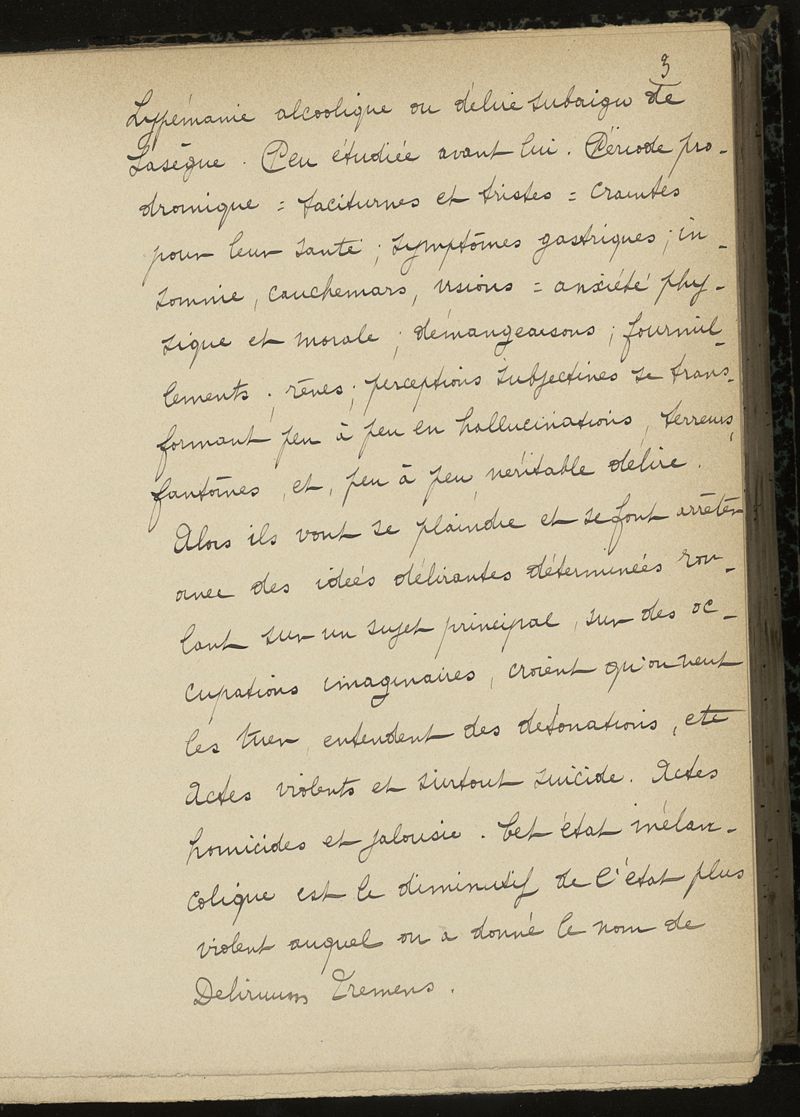 3
Lypémanie alcoolique ou délire subaigu de
Lasègue. Peu étudiée avant lui. Période pro-
dromique = taciturnes et tristes = craintes
pour leur santé ; symptômes gastriques ; in-
somnie, cauchemars, visions = anxiété phy-
sique et morale ; démangeaisons ; fourmil-
lements ; rêves ; perceptions subjectives se trans-
formant peu à peu en hallucinations, terreurs,
fantômes, et, peu à peu, véritable délire.
Alors ils vont se plaindre et se font arrêter
avec des idées délirantes déterminées rou-
lant sur un sujet principal, sur des oc-
cupations imaginaires, croient qu'on veut
les tuer, entendent des détonations, etc
Actes violents et surtout suicide. Actes
homicides et jalousie. Cet état mélan-
colique est le diminutif de l'état plus
violent auquel on a donné le nom de
Delirium Tremens.